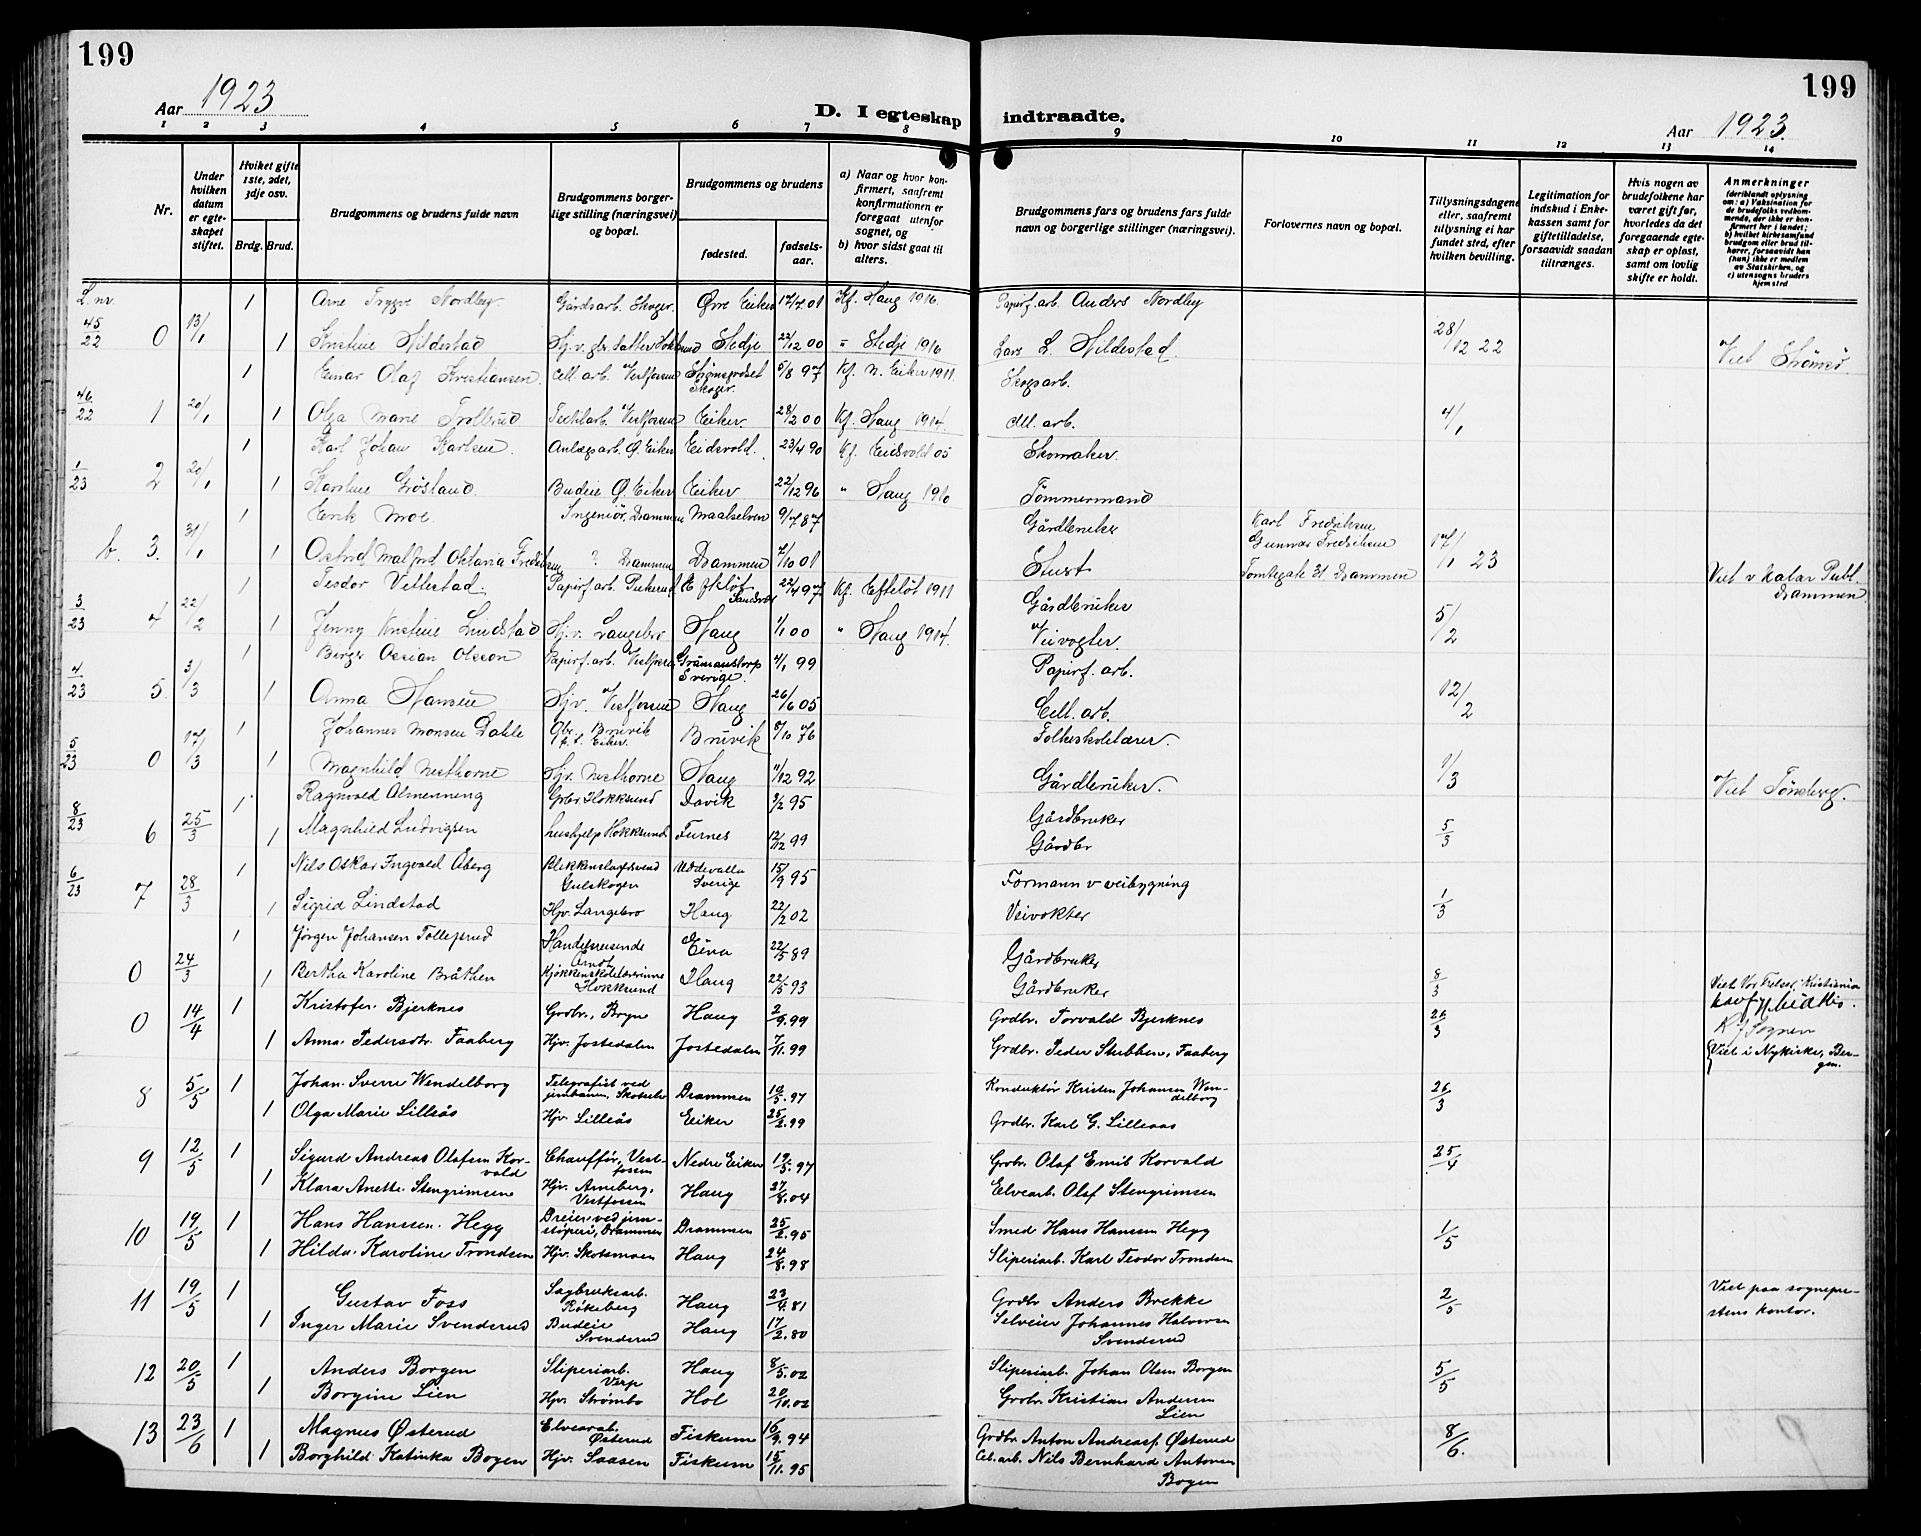 199
199
Aar 1923
D. I egteskap
indtraadte.
Aar 1923.
1 2 3 4 5 6 7 8
9 10 11 12 13 14
Nr.
Under hvilken datum er egteskapet stiftet.
Hvilket gifte 1ste, 2det, 3dje osv.
Brdg. Brud.
Brudgommens og brudens fulde navn
Brudgommens borgerlige stilling (næringsvei) og bopæl.
Brudgommens og brudens
fødested.
fødselsaar.
a) Naar og hvor konfirmert, saafremt konfirmationen er foregaat utenfor sognet, og
b) hvor sidst gaat til alters.
Brudgommens fars og brudens fars fulde navn og borgerlige stillinger (næringsvei).
Forlovernes navn og bopæl.
Tillysningsdagene eller, saafremt tillysning ei har fundet sted, efter hvilken bevilling.
Legitimation for indskud i Enkekassen samt for giftetilladelse, forsaavidt saadan tiltrænges.
Hvis nogen av brudefolkene har været gift før, hvorledes da det foregaaende egteskap er opløst, samt om lovlig skifte er holdt.
Anmerkninger
(deriblandt oplysning om: a) Vaksination for de brudefolks vedkommende, der ikke er konfirmert her i landet; b) hvilket kirkesamfund brudgom eller brud tilhører, forsaavidt han (hun) ikke er medlem av Statskirken, og c) utensogns bruders hjemsted
L. nr.
1 Arne Trygve Nordby. Gårdsarb. Skoger. Øvre Eiker 12/7 01 Kf. Haug 1916. Papirf. arb. Anders Nordby
45/22 0 13/1 1 Kristine Hildestad Stedje 22/12 00 " Stedje 1916 Lars L. Hildestad. 28/12 22 Viet Strømsø
1 Einar Olaf Kristiansen. Cell. arb. Vestfossen Strømsgodset Skoger. 5/8 97 Kf. N. Eiker 1911. Skogsarb.
46/22 1 20/1 1 Olga Marie Trolbrud Textilarb. Vestfossen Eiker 28/2 00 Kf. Haug 1914. Cell. arb. 4/1
1 Karl Johan Karlsen. Anlægsarb. Ø. Eiker Eidsvold. 23/4 90 Kf. Eidsvold 05 Skomaker.
1/23 2 20/1 1 Karoline Grøsland. Budeie Ø. Eiker Eiker 22/12 96 " Haug 1910 Tømmermand
1 Erik Moe. Ingeniør, Drammen Maalselven 9/7 87 Gårdbruker Karl Fredriksen
b. 3. 31/1 1 ? Drammen Drammen 7/10 01 Gunnar Fredriksen Tomtegate 31 Drammen 17/1 23 Viet v. Katar Publ. Drammen
1 Teodor Vellestad. Papirf. arb. Efteløt Sandsvær 22/4 97 Kf. Efteløt 1911 Gårdbruker
3/23 4 22/2 1 Jenny Kristine Lindstad Hj. v. Langebro Haug 1/1 00 " Haug 1914. Veivogter. 5/2
1 Birger Ossian Olsson Papirf. arb. Vestfossen Gråmanstorp Sverige. 4/1 99 Papirf. arb.
4/23 5. 3/3 1 Anna Hansen Hjv. Vestfossen Haug 26/6 05 Cell. arb. 12/2
1 Johannes Monsen Dahle Gbr. Bruvik p. t. Eiker. Bruvik 5/10 76 Folkeskolelærer.
5/23 0 17/3 1 Magnhild Nesthorne Hjv. Nesthorne Haug 11/12 92 Gårdbruker. 1/3 Viet Tønsberg.
1 Ragnvald Almenning Grbr Hokksund Davik 3/2 95 Gårdbruker
8/23 6 25/3 1 Magnhild Ludvigsen hushjelp Hokksund Furnes 12/12 99 Gårdbr 5/3
1 Nils Oskar Ingvald Åberg Blikkenslagersvend Gulskogen Uddevalla Sverige 15/9 95 Formann v veibygning
6/23 7 28/3 1 Sigrid Lindstad Hjv. Langebro Haug 22/2 02 Veivokter 1/3
1 Jørgen Johansen Tollefsrud Handelsreisende Eina 22/5 89 Gårdbruker
0 24/3 1 Bertha Karoline Bråthen Kjøkkenskolelærerinne Hokksund Haug 22/5 93 Gårdbruker 8/3 Viet Vor Frelser, Kristiania
0 14/4 1 Kristofer Bjerknes Grdbr., Bryn Haug 2/9.99 Grdbr. Torvald Bjerknes 26/3
1 Anna Pedersdtr. Faaberg Hjv. Jostedalen Jostedalen 7/11.99 Grdbr. Peder Stubben, Faaberg Viet i Nykirke, Bergen.
8 5/5 1 Johan Sverre Wendelborg Telegrafist ved jernbanen, Skotselv Drammen 10/5.97 Konduktør Kristen Johansen Wendelborg 26/3
1 Olga Marie Lilleås Hjv. Lilleås Eiker 25/2.99 Grdbr. Karl G. Lilleaas
9 12/5 1 Sigurd Andreas Olafsen Korvald Chauffør, Vestfossen Nedre Eiker 19/5.97 Grbr. Olaf Emil Korvald 25/4
1 Klara Anette Stengrimsen Hjv. Arneberg, Vestfossen Haug 27/8.04 Elvearb. Olaf Stengrimsen
10 19/5 1 Hans Hanssen Hegg Dreier ved jernstøperi, Drammen Drammen 25/2.95 Smed Hans Hansen Hegg 1/5
1 Hilda Karoline Trondsen Hjv. Skotsmoen Haug 24/8.98 Sliperiarb. Karl Teodor Trondsen
11 19/5 1 Gustav Foss Sagbruksarb. Røkeberg Haug 23/4.81 Grdbr Anders Brekke 2/5 Viet paa sogneprestens kontor.
1 Inger Marie Svenderud Budeie Svenderud Haug 17/2.80 Selveier Johannes Halvorsen Svenderud
12 20/5 1 Anders Borgen Sliperiarb. Verp Haug 8/5.02 Sliperiarb. Johan Olsen Borgen 5/5
1 Borgine Lien Hjv. Strømbo Hol 20/10.02 Grbr. Kristian Andersen Lien
13 23/6 1 Magnus Østerud Elvearb. Østerud Fiskum 16/9.94 Grdbr. Anton Andreasf. Østerud 8/6.
1 Borghild Katinka Bogen Hjv. Saasen Fiskum 15/11.95 Cel. arb. Nils Bernhard Antonsen Bogen